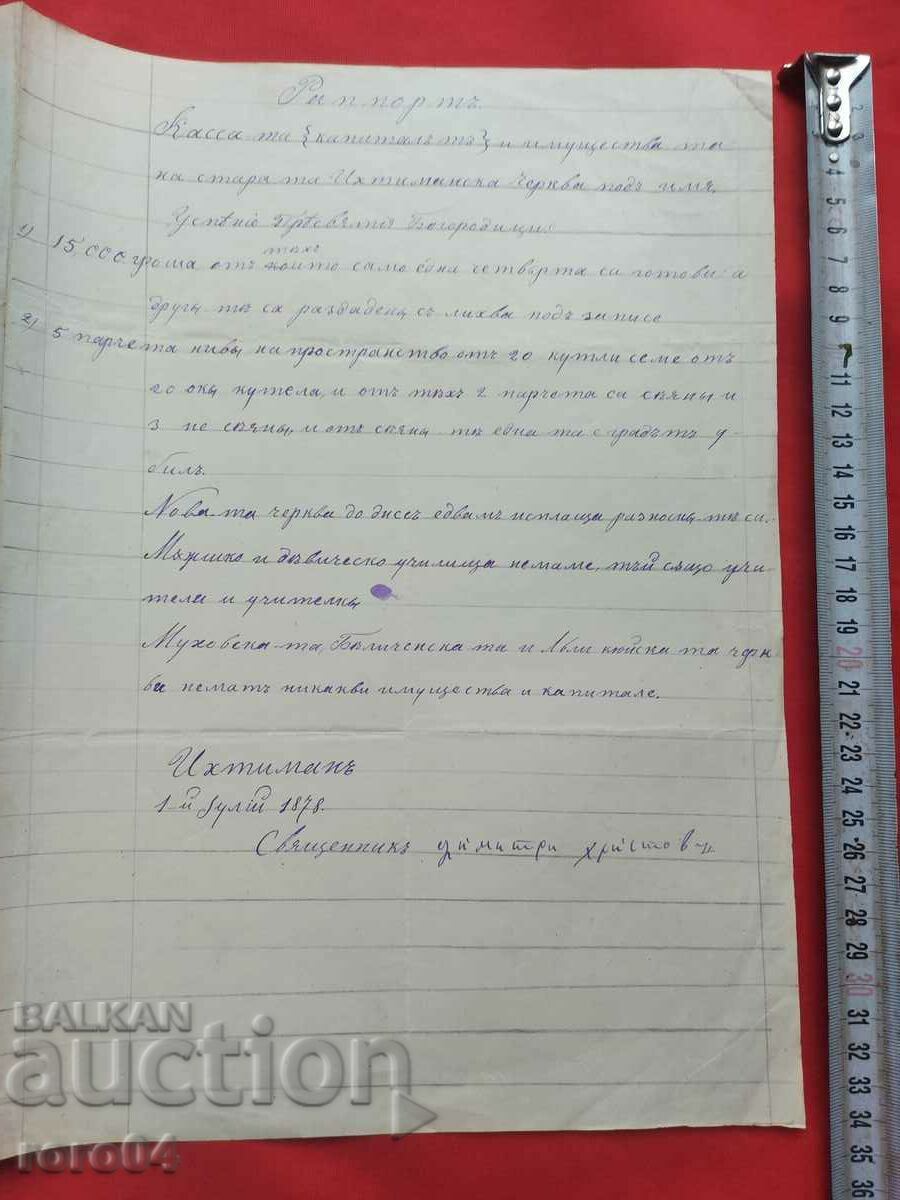 Раппортъ
Касса та {капиталътъ} и имущества та
на стара та Ихтиманска черква подъ имя
Успѣніе Прѣсвятыя Богородици:
1) 15,000 гроша отъ тѣхъ само една четвърта са готови: а
другы тѣ са раздадены съ лихва подъ записе
2) 5 парчета нивы на пространство отъ 20 кутли семе отъ
20 окы кутела, и отъ тѣхъ 2 парчета са сѣяны и
3 не сѣяны, и отъ сѣяны тѣ една та градътъ у-
билъ.
Нова та черква до днесь едвамъ исплаща разносны тѣ си.
Мѫжшко и дѣвическо училища немаме, тъй сѫщо учи-
тела и учителкы
Муховска та, Бѣличенска та и кюйска та черк-
ва немать никакви имущества и капитале.
Ихтиманъ
1-й Јулій 1878.
Священникъ Димитри Христовъ
BALKAN
auction
roro04
2 3 4 5 6 7 8 9 11 12 13 14 15 16 17 18 19 20 21 22 23 24 25 26 27 28 29 30 31 32 33 34 35 36